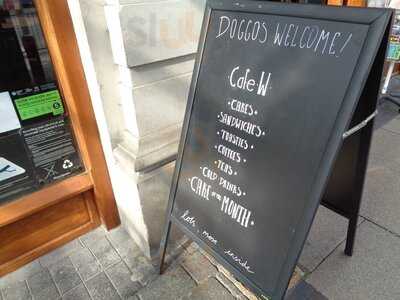 DOGGOS WELCOME!
Cafe W
• CAKES •
• SANDWICHES •
• TOASTIES •
• COFFEES •
• TEAS •
• COLD DRINKS •
• CAKE OF THE MONTH •
Lots more inside